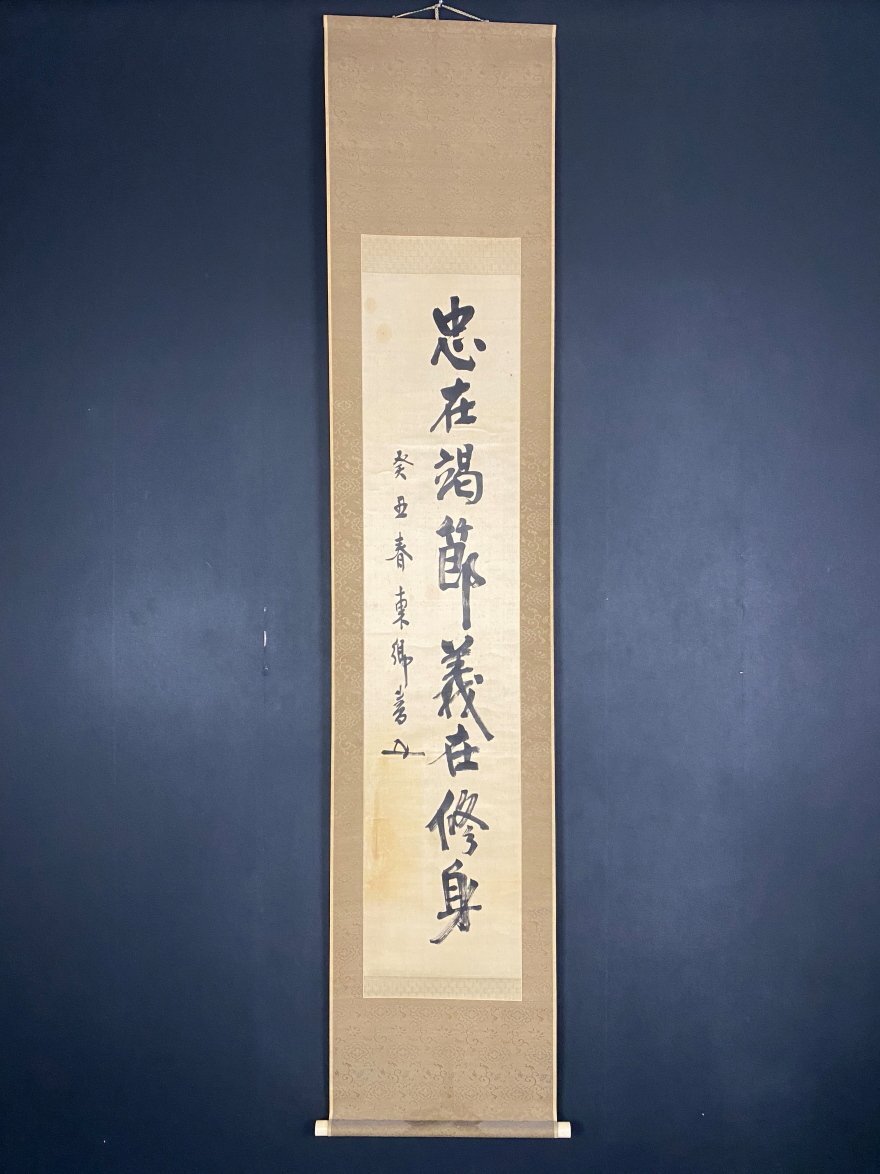 忠在竭節義在修身
癸丑春 東郷書